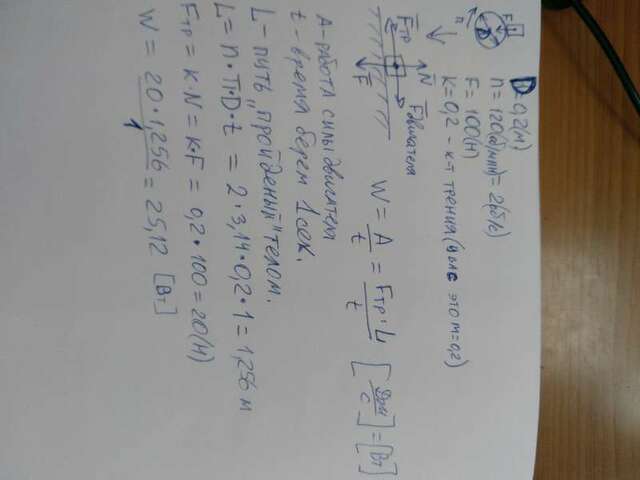 n F
D=0,2(м)
n=120(об/мин)=2(об/с)
F=100(Н)
K=0,2 - к-т трения (у вас это m=0,2)
Fтр N F Fдвигателя
W = A/t = Fтр·L/t [Дж/с]=[Вт]
A-работа силы двигателя
t-время берем 1сек.
L-путь "пройденый" телом.
L=n·π·D·t = 2·3,14·0,2·1=1,256 м
Fтр=к·N=к·F=0,2·100=20(Н)
W = 20·1,256/1 = 25,12 [Вт]